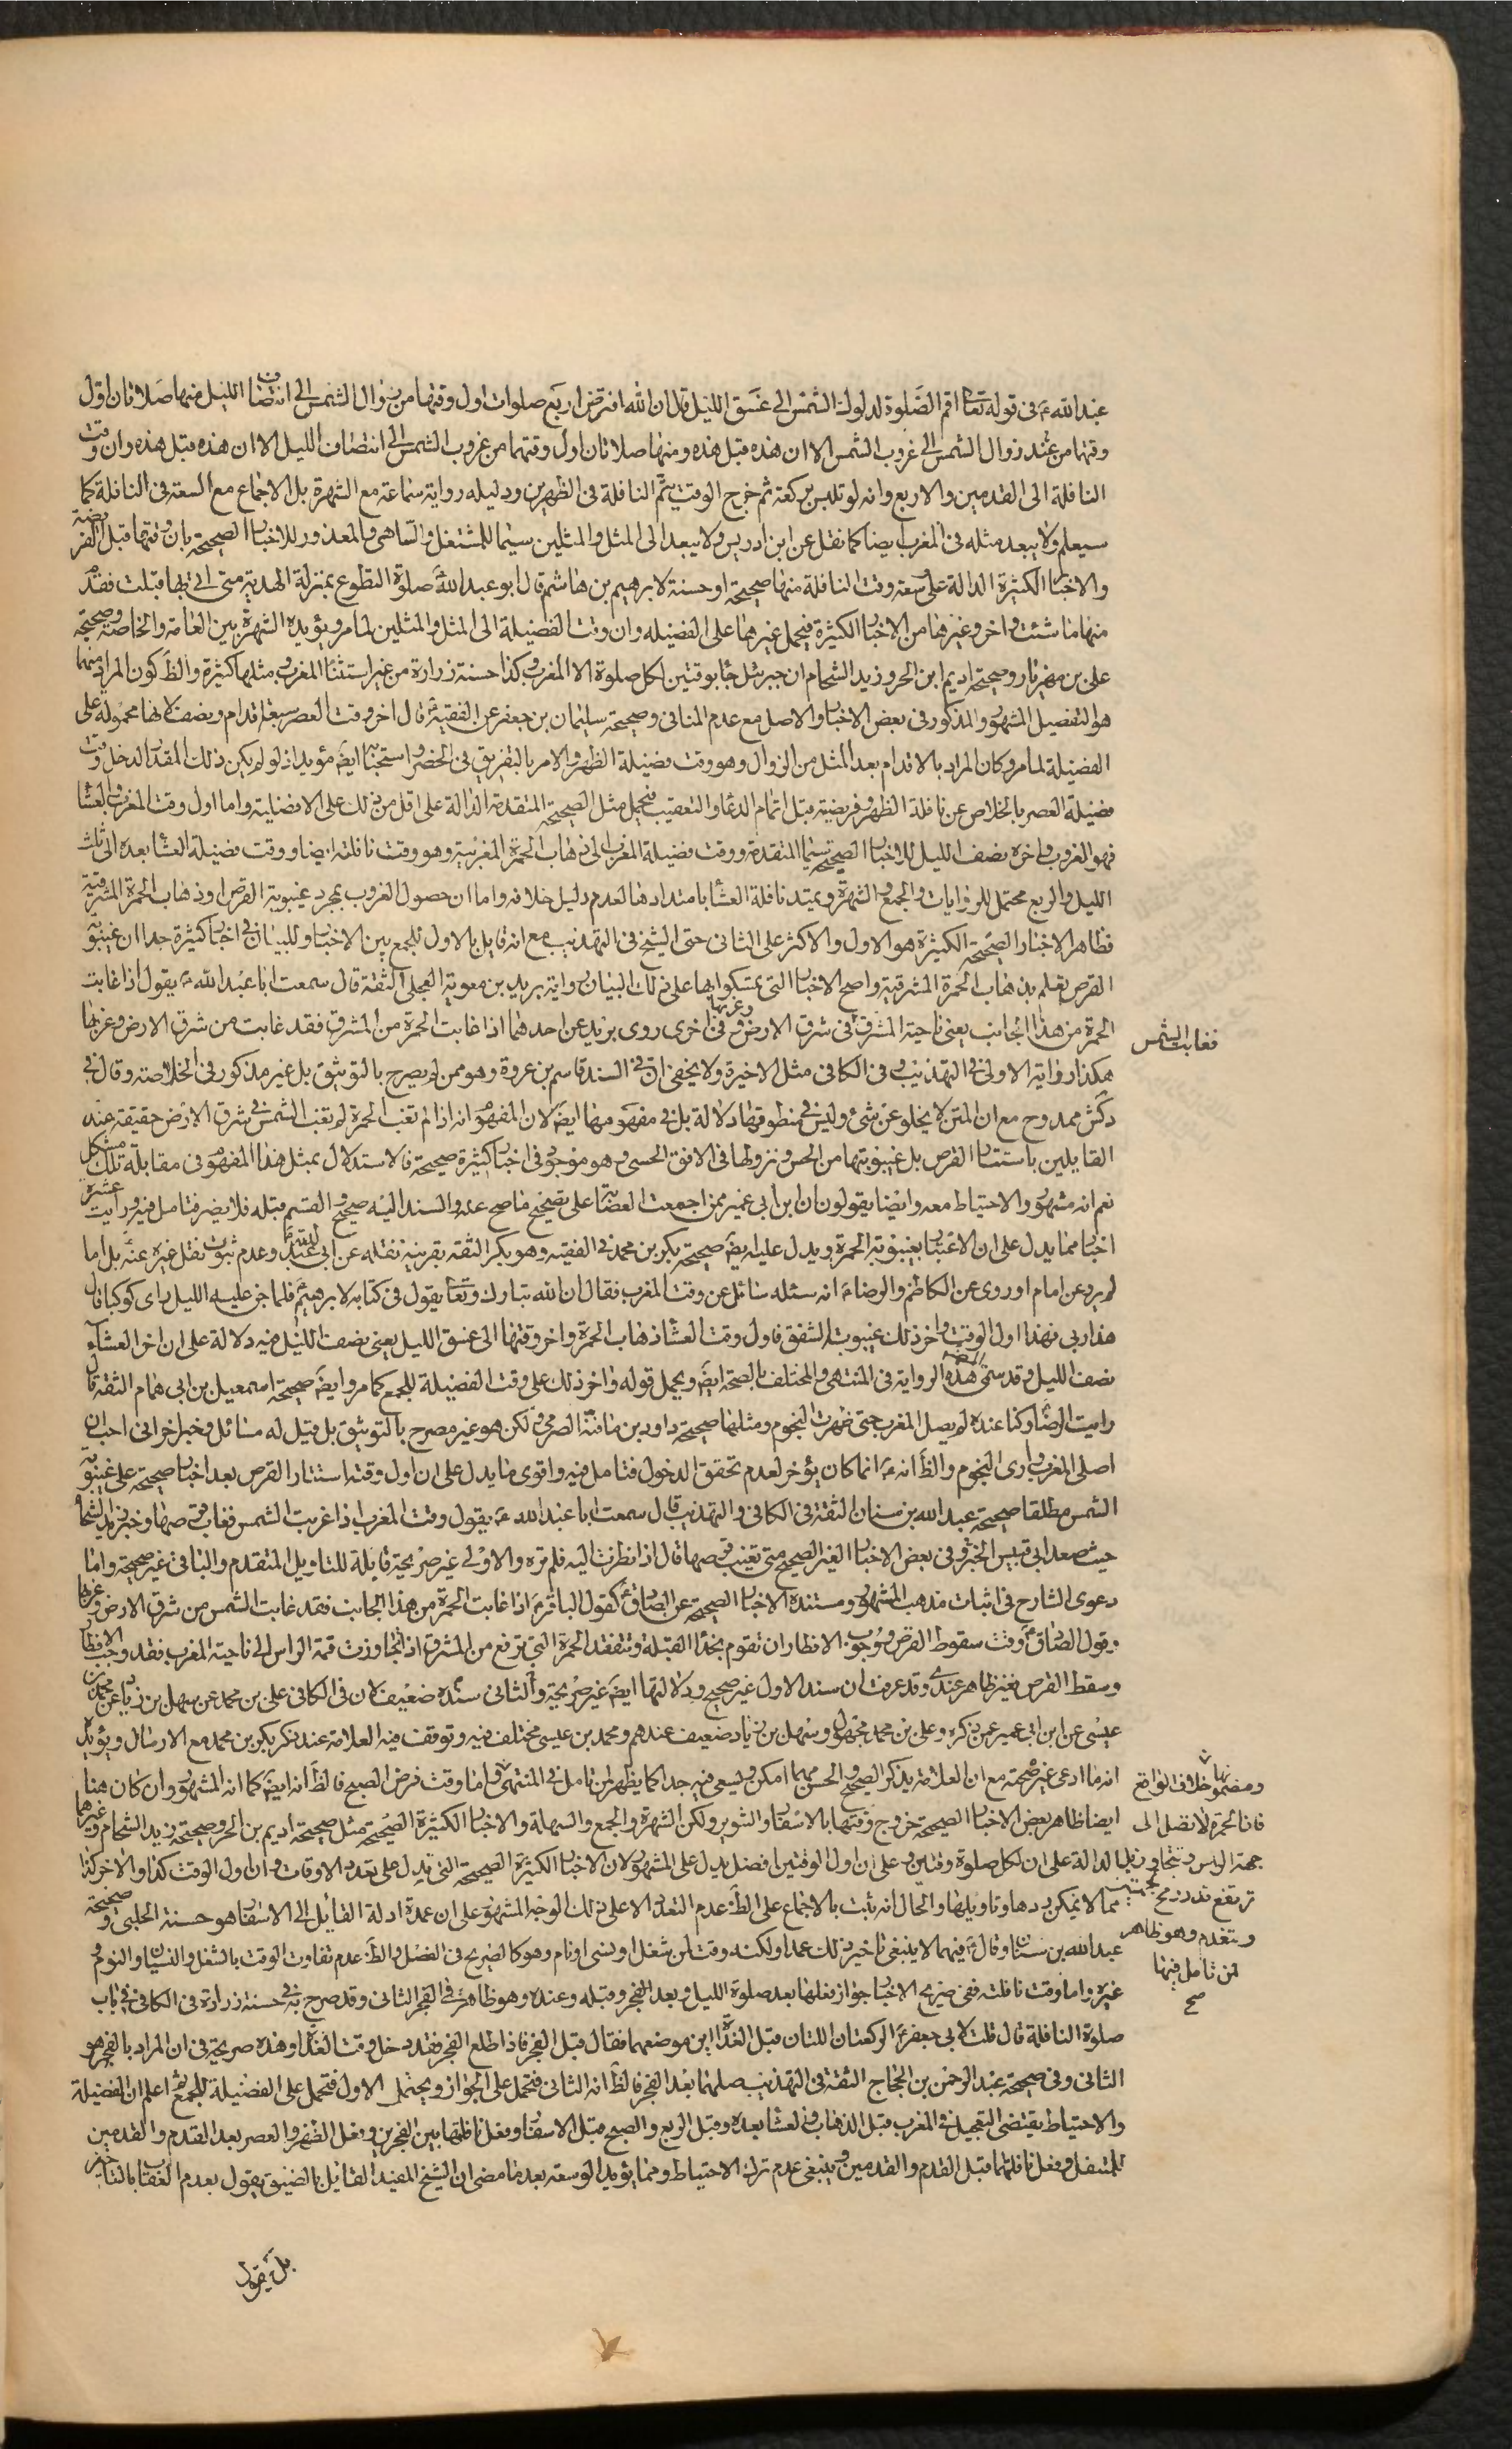 عبد الله ع في قوله تعا اقم الصلوة لدلوك الشمس الى غسق الليل قال ان الله افترض اربع صلوات اول وقتها من زوال الشمس الى انتصاف الليل منها صلاتان اول
وقتها من عند زوال الشمس الى غروب الشمس الا ان هذه قبل هذه ومنها صلاتان اول وقتهما من غروب الشمس الى انتصاف الليل الا ان هذه قبل هذه وان وقت
النافلة الى القدمين والاربع وانه لو تلبس بركعة ثم خرج الوقت يتم النافلة في الظهرين ودليله رواية سماعة مع الشهرة بل الاجماع مع السعة في النافلة كما
سيعلم ولا يبعد مثله في المغرب ايضا كما نقل عن ابن ادريس ولا يبعد الى المثل والمثلين سيما للمشتغل والساهى والمعذور للاخبار الصحيحة بان وقتها قبل الفريضة
والاخبار الكثيرة الدالة على سعة وقت النافلة منها صحيحة او حسنة لابرهيم بن هاشم قال ابو عبد الله صلوة التطوع بمنزلة الهدية متى اتى بها قبلت فقدم
منها ما شئت واخر وغيرها من الاخبار الكثيرة فيحمل غيرهما على الفضيله وان وقت الفضيلة الى المثل والمثلين لما مر ويؤيده الشهرة بين العامة والخاصة وصحيحة
على بن مهزيار وصحيحة اديم ابن الحر وزيد الشحام ان جبرئيل جاء بوقتين لكل صلوة الا المغرب وكذا حسنة زرارة من غير استثناء المغرب ومثلها كثيرة والظ كون المراد منهما
هو التفصيل المشهور والمذكور في بعض الاخبار والاصل مع عدم المنافى وصحيحة سليمان بن جعفر عن الفقيه قال اخر وقت العصر سبعة اقدام ونصف لانها محمولة على
الفضيلة لما مر وكان المراد بالاقدام بعد المثل من الزوال وهو وقت فضيلة الظهر والامر بالتفريق في الحضر واستحبابه ايض مؤيد اذ لو لم يكن ذلك المقدار لدخل وقت
فضيلة العصر بالخلاص عن نافلة الظهر وفريضته قبل اتمام الدعاء والتعقيب فيحمل مثل الصحيحة المتقدمة الدالة على اقل من ذلك على الافضلية واما اول وقت المغرب والعشا
فهو الغروب واخره نصف الليل للاخبار الصحيحة سيما المتقدمة ووقت فضيلة المغرب الى ذهاب الحمرة المغربية وهو وقت نافلته ايضا ووقت فضيلة العشا بعده الى ثلث
الليل والربع محتمل للروايات والجمع والشهرة ويمتد نافلة العشاء بامتدادها لعدم دليل خلافه واما ان حصول الغروب بمجرد غيبوبة القرص او ذهاب الحمرة المشرقية
فظاهر الاخبار الصحيحة الكثيرة هو الاول والاكثر على الثانى حتى الشيخ في التهذيب مع انه قايل بالاول للجمع بين الاخبار وللبيان في اخبار كثيرة جدا ان غيبوبة
القرص يعلم بذهاب الحمرة المشرقية واصح الاخبار التى تمسكوا بها على ذلك البيان رواية بريد بن معوية العجلى الثقة قال سمعت ابا عبد الله ع يقول اذا غابت
الحمرة من هذا الجانب يعنى ناحية المشرق في شرق الارض وغربها وفي اخرى روى بريد عن احدهما اذا غابت الحمرة من المشرق فقد غابت من شرق الارض وغربها
فغابت الشمس
هكذا رواية الاولى في التهذيب وفى الكافى مثل الاخيرة ولا يخفى ان في السند قاسم بن عروة وهو ممن لم يصرح بالتوثيق بل غير مذكور في الخلاصة وقال في
د كش ممدوح مع ان المتن لا يخلو عن شئ وليس في منطوقها دلالة بل في مفهومها ايض لان المفهوم انه اذا لم تغب الحمرة لم تغب الشمس في شرق الارض حقيقة عند
القايلين باستتار القرص بل غيبوبتها من الحس ونزولها في الافق الحسى وهو موجود في اخبار كثيرة صحيحة فالاستدلال بمثل هذا المفهوم في مقابلة تلك مشكل
نعم انه مشهور والاحتياط معه وايضا يقولون ان ابن ابي عمير ممن اجمعت العصابة على تصحيح ما صح عنه والسند اليه صحيح والقسم قبله فلا يضر فتامل فيه ورايت عشرة
اخبار مما يدل على ان الاعتبار بغيبوبة الحمرة ويدل عليه ايض صحيحة بكر بن محمد في الفقيه وهو بكر الثقة بقرينة نقله عن ابي عبد الله وعدم ثبوت نقل غيره عنه بل اما
لم يرو عن امام او روى عن الكاظم والرضاء انه سئله سائل عن وقت المغرب فقال ان الله تبارك وتعا يقول في كتابه لابرهيم فلما جن عليه الليل راى كوكبا قال
هذا ربى فهذا اول الوقت واخر ذلك غيبوبة الشفق فاول وقت العشا ذهاب الحمرة واخر وقتها الى غسق الليل يعنى نصف الليل فيه دلالة على ان اخر العشاء
نصف الليل وقد سمى هذه الرواية في المنتهى والمختلف بالصحة ايض ويحمل قوله واخر ذلك على وقت الفضيلة للجمع كما مر وايض صحيحة اسمعيل بن ابى همام الثقة قال
رايت الرضا وكنا عنده لم يصل المغرب حتى ظهرت النجوم ومثلها صحيحة داود بن مافنة الصرمى ولكن هو غير مصرح بالتوثيق بل قيل له مسائل وخبر اخر انى احب ان
اصلى المغرب وارى النجوم والظ انه ع انما كان يؤخر لعدم تحقق الدخول فتامل فيه واقوى ما يدل على ان اول وقته استتار القرص بعد اخبار صحيحة على غيبوبة
الشمس مطلقا صحيحة عبد الله بن سنان الثقة في الكافى والتهذيب قال سمعت ابا عبد الله ع يقول وقت المغرب اذا غربت الشمس فغاب قرصها وخبر زيد الشحام
حيث صعد ابى قبيس الخبر وفى بعض الاخبار الغير الصحيح متى تغيب قرصها قال اذا نظرت اليه فلم تره والاولى غير صريحة قابلة للتاويل المتقدم والباقى غير صحيحة واما
دعوى الشارح في اثبات مذهب المشهور ومستنده الاخبار الصحيحة عن الصادق كقول الباقر اذا غابت الحمرة من هذا الجانب فقد غابت الشمس من شرق الارض وغربها
وقول الصادق وقت سقوط القرص ووجوب الافطار ان تقوم بحذا القبلة وتتفقد الحمرة التى ترتفع من المشرق اذا تجاوزت قمة الراس الى ناحية المغرب فقد وجب الافطار
وسقط القرص فغير ظاهر عندى وقد عرفت ان سند الاول غير صحيح ودلالتها ايض غير صريحة والثانى سنده ضعيف لان في الكافى على بن محمد عن سهل بن زياد عن محمد بن
عيسى عن ابن ابى عمير عمن ذكره وعلى بن محمد مجهول وسهل بن زياد ضعيف عندهم ومحمد بن عيسى مختلف فيه وتوقف فيه العلامة عند ذكر بكر بن محمد مع الارسال ويؤيد
انه ما ادعى غير صحته مع ان العلامة يذكر الصحيح والحسن مهما امكن ويسعى فيه جدا كما يظهر لمن تامل في المنتهى واما وقت فرض الصبح فالظ انه ايض كما انه المشهور وان كان هنا
ايضا ظاهر بعض الاخبار الصحيحة خروج وقتها بالاسفار والتنوير ولكن الشهرة والجمع والسهلة والاخبار الكثيرة الصحيحة مثل صحيحة اديم بن الحر وصحيحة زيد الشحام وغيرهما
الدالة على ان لكل صلوة وقتان وعلى ان اول الوقتين افضل يدل على المشهور لان الاخبار الكثيرة الصحيحة التى تدل على تعدد الاوقات وان اول الوقت كذا والاخر كذا
مما لا يمكن ردها وتاويلها والحال انه يثبت بالاجماع على الظ عدم التعدد الا على ذلك الوجه المشهور على ان عمدة ادلة القائل الى الاسفار هو حسنة الحلبى وصحيحة
عبد الله بن سنان وقال فيهما لا ينبغى تاخير ذلك عمدا ولكنه وقت لمن شغل او نسى او نام وهو كالصريح في الفضل والظ عدم تفاوت الوقت بالشغل والنسيان والنوم و
غيره واما وقت نافلته ففى صريح الاخبار جواز فعلها بعد صلوة الليل وبعد الفجر وقبله وعنده وهو ظاهر في الفجر الثانى وقد صرح به في حسنة زرارة في الكافى في باب
صلوة النافلة قال قلت لابى جعفر ع الركعتان اللتان قبل الغداة اين موضعهما فقال قبل الفجر فاذا طلع الفجر فقد دخل وقت الغداة وهذه صريحة في ان المراد بالفجر هو
الثانى وفى صحيحة عبد الرحمن بن الحجاج الثقة في التهذيب صلهما بعد الفجر فالظ انه الثانى فتحمل على الجواز ويحتمل الاول فتحمل على الفضيلة للجمع ثم اعلم ان الفضيلة
والاحتياط يقتضى التعجيل في المغرب قبل الذهاب والعشا بعده وقبل الربع والصبح قبل الاسفار وفعل نافلتها بين الفجرين وفعل الظهر والعصر بعد القدم والقدمين
للمتنفل وفعل نافلتهما قبل القدم والقدمين وينبغى عدم ترك الاحتياط ومما يؤيد الوسعة بعد ما مضى ان الشيخ المفيد القايل بالضيق يقول بعدم العقاب بالتاخير
ومضمونها خلاف الواقع
فان الحمرة لا تصل الى
جهة الراس وتتجاوز بل
ترتفع قدر رمح
وتنعدم وهو ظاهر
لمن تامل فيها
صح
بل يقول